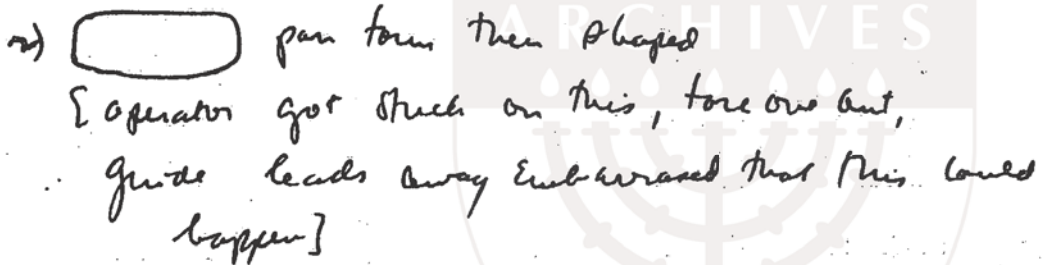 ARCHIVES
2) pan form then shaped
[operator got stuck on this, tore one out,
guide leads away embarrassed that this could
happen]